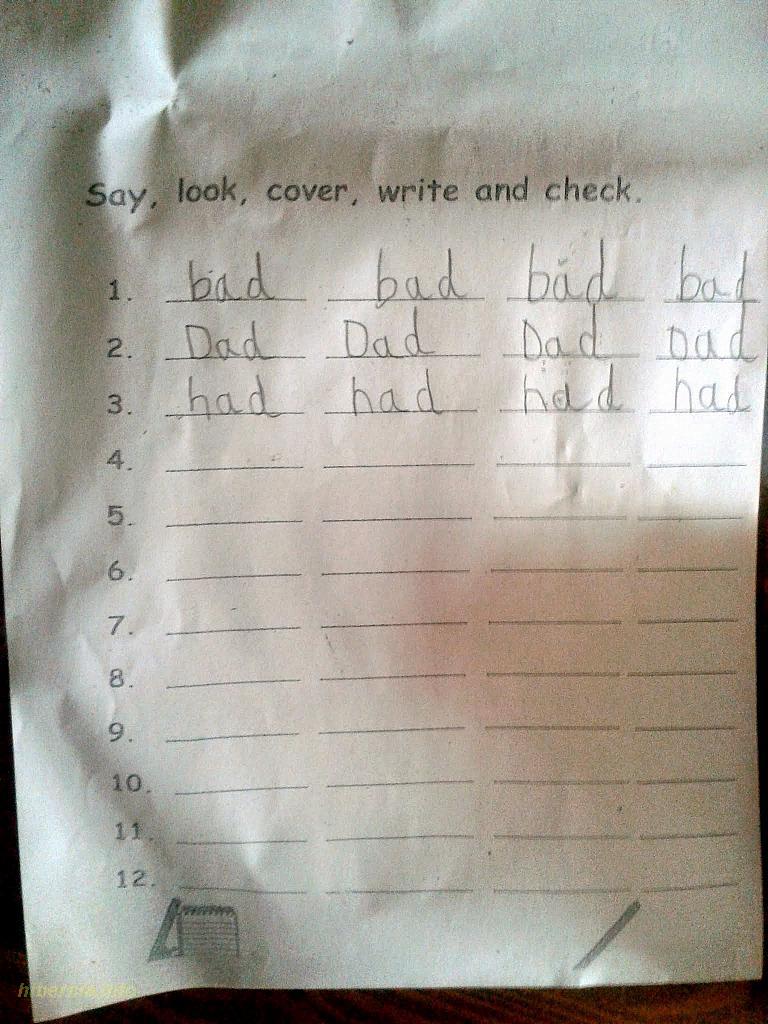 Say, look, cover, write and check.
1. bad bad bad bad
2. Dad Dad Dad Dad
3. had had had had
4.
5.
6.
7.
8.
9.
10.
11.
12.